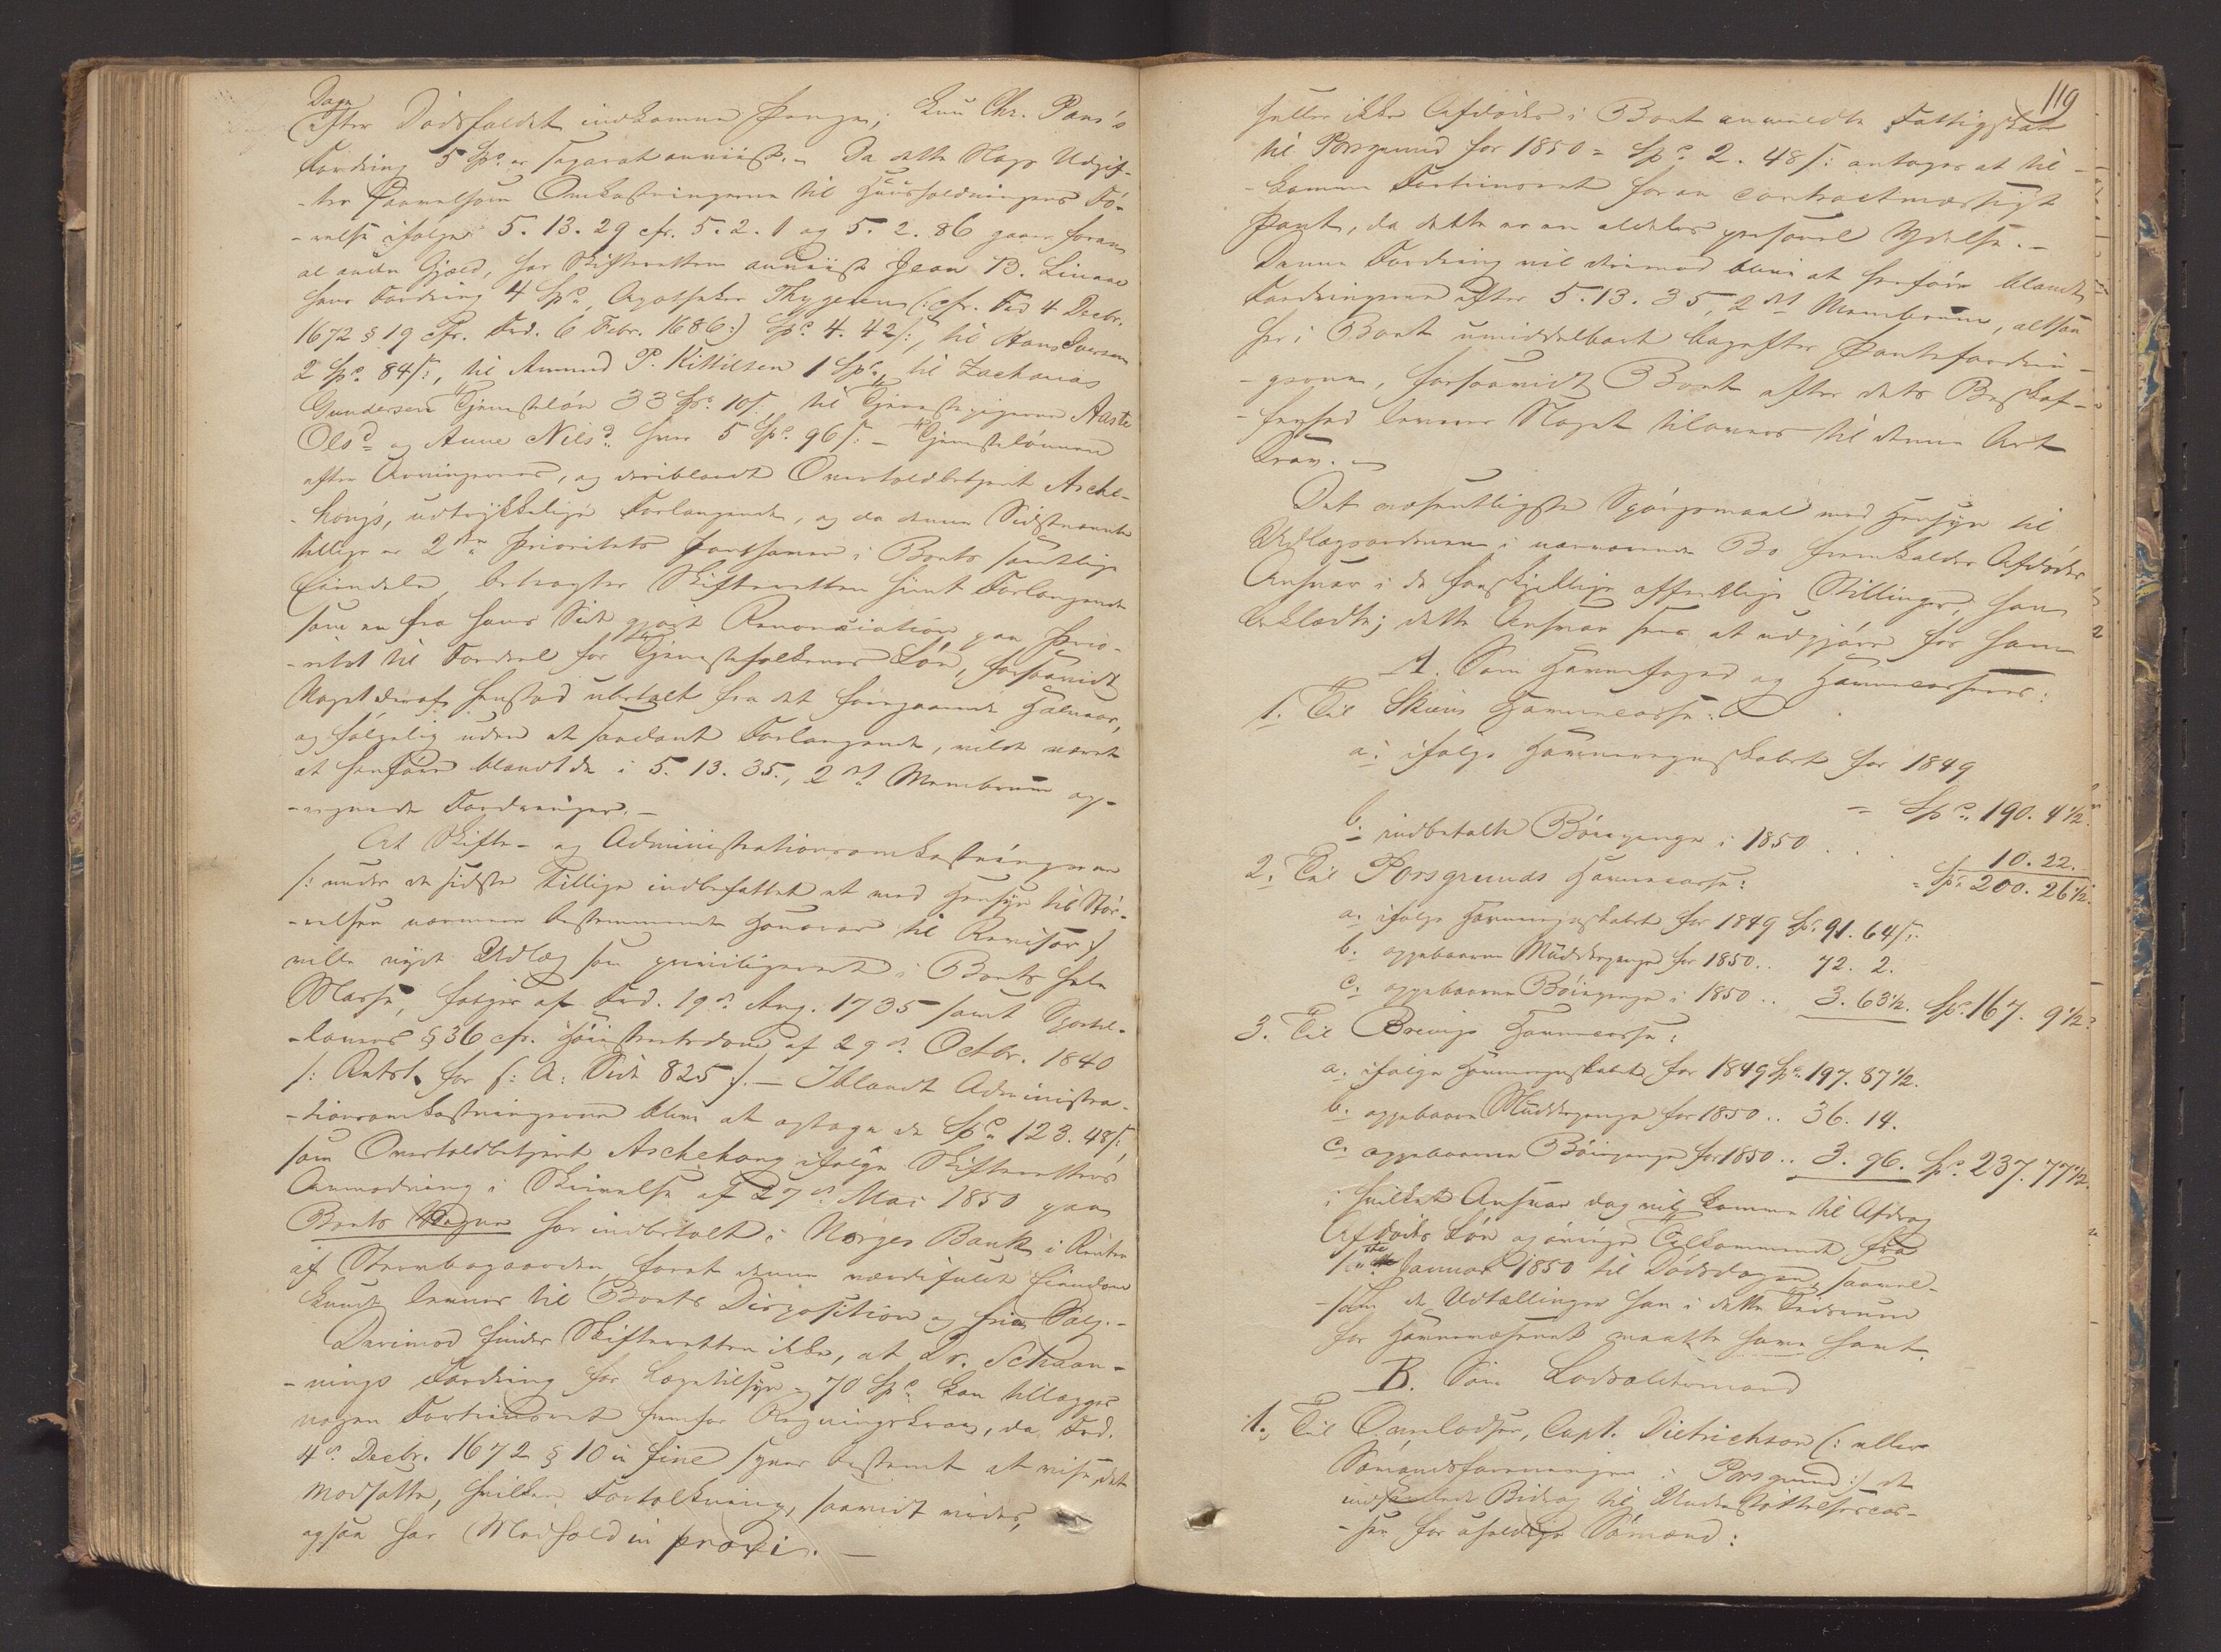 Dagen
efter Dødsfaldet indkomne Penge; kun Chr. Paus's
Fordring 5 Spd. er separat anviist. – Da dette Slags Udgif-
-ter saavelsom Omkostningerne til Huusholdningens Fø-
-relse ifølge 5. 13. 29 cfr. 5. 2. 1 og 5. 2. 86 gaaer foran
al anden Gjæld, har Skifteretten anviist Jean B. Linaae
hans Fordring 4 Spd., Apotheker Thygesen (: cfr. Frd 4 Decbr.
1672 § 19 cfr. Frd. 6 Febr. 1686 :) Spd. 4. 42 s:, til Hans Iversen
2 Spd. 84 s:, til Amund P. Kittilsen 1 Spd., til Zacharias
Gundersen Tjenesteløn 33 Spd. 10 s. til Tjenestepigerne Aaste
Olsd. og Anne Nilsd. hver 5 Spd. 96 s: – Tjenestelønnen
efter Arvingernes, og deriblandt Overtoldbetjent Asche-
-hougs, udtrykkelige Forlangende, og da denne Sidstnævnte
tillige er 2den Prioritets Panthaver i Boets samtlige
Eiendele, betragter Skifteretten hiint Forlangende
som en fra hans Side gjort Renonciation paa Prio-
-ritet til Fordeel for Tjenestefolkenes Løn, forsaavidt
Noget deraf henstod ubetalt fra det foregaaende Halvaar,
og følgelig uden et saadant Forlangende, vilde været
at henføre blandt de i 5. 13. 35., 2det Membrum op-
-regnede Fordringer. –
At Skifte- og Administrationsomkostningerne
/: under de sidste tillige indbefattet et med Hensyn til Stør-
-relsen nærmere bestemmende Honorar til Revisor :/
ville nyde Udlæg som priviligerede i Boets hele
Masse, følger af Frd. 19de Aug. 1735 samt Sportel-
-lovens § 36 cfr. Høiesteretsdom af 29de Octbr. 1840
/: Retst. for s: A: Side 825 :/. – Iblandt Administra-
-tionsomkostningerne blive at optage de Spd. 123. 48 s:,
som Overtoldbetjent Aschehoug ifølge Skifterettens
Anmodning i Skrivelse af 27de Mai 1850 paa
Boets Vegne har indbetalt i Norges Bank i Renter
af Stervbogaarden, forat denne værdifulde Eiendom
kunde leveres til Boets Disposition og frie Salg. –
Derimod finder Skifteretten ikke, at Dr. Schaan-
-nings Fordring for Lægetilsyn 70 Spd. kan tillægges
nogen Fortrinsret fremfor Regningskrav, da Frd.
4de Decbr. 1672 § 10 in fine synes bestemt at vise det
Modsatte, hvilken Fortolkning, saavidt vides,
ogsaa har Medhold in praxi. –
119
Heller ikke Afdødes i Boet anmeldte Fattigskat
til Porsgrund for 1850 = Spd. 2. 48 s: antages at til-
-komme Fortrinsret foran contractmæssigt
Pant, da dette er en aldeles personel Ydelse. –
Denne Fordring vil derimod blive at henføre blandt
Fordringerne efter 5. 13. 35, 2det Membrum, altsaa
her i Boet umiddelbart bagefter Pantefordrin-
-gerne, forsaavidt Boet efter dets Beskaf-
-fenhed levner Noget tilovers til denne Art
Krav. –
Det væsentligste Spørgsmaal med Hensyn til
Udlægsordenen i nærværende Bo fremkalder Afdødes
Ansvar i de forskjellige offentlige Stillinger, han
beklædte; dette Ansvar sees at udgjøre for ham
A. Som Havnefoged og Havnecasserer:
1. Til Skiens Havnecasse:
a: ifølge Havneregnskabet for 1849
= Spd. 190. 4½.
b: indbetalte Bøiepenge i 1850 . . . 10. 22.
= Spd. 200. 26½.
2. Til Porsgrunds Havnecasse:
a. ifølge Havneregnskabet for 1849 Spd. 91. 64 s:
b. oppebaarne Mudderpenge for 1850 .. 72. 2.
c. oppebaarne Bøiepenge i 1850 .. 3. 63½. Spd. 167. 9½.
3. Til Brevigs Havnecasse:
a. ifølge Havneregnskabet for 1849 Spd. 197. 87½.
b. oppebaarne Mudderpenge for 1850 .. 36. 14.
c. oppebaarne Bøiepenge for 1850 .. 3. 96. Spd. 237. 77½.
i hvilket Ansvar dog vil komme til Afdrag
Afdødes Løn og øvrige Tilkommende fra
1ste Januar 1850 til Dødsdagen, saavel-
-som de Udtællinger han i dette Tidsrum
for Havnevæsenet maatte have havt.
B. Som Lodsoldermand
1. Til Overlodsen, Capt. Dietrichson (: eller
Sømandsforeningen i Porsgrund :) de
indsamlede Bidrag til Understøttelsescas-
-sen for uheldige Sømænd: